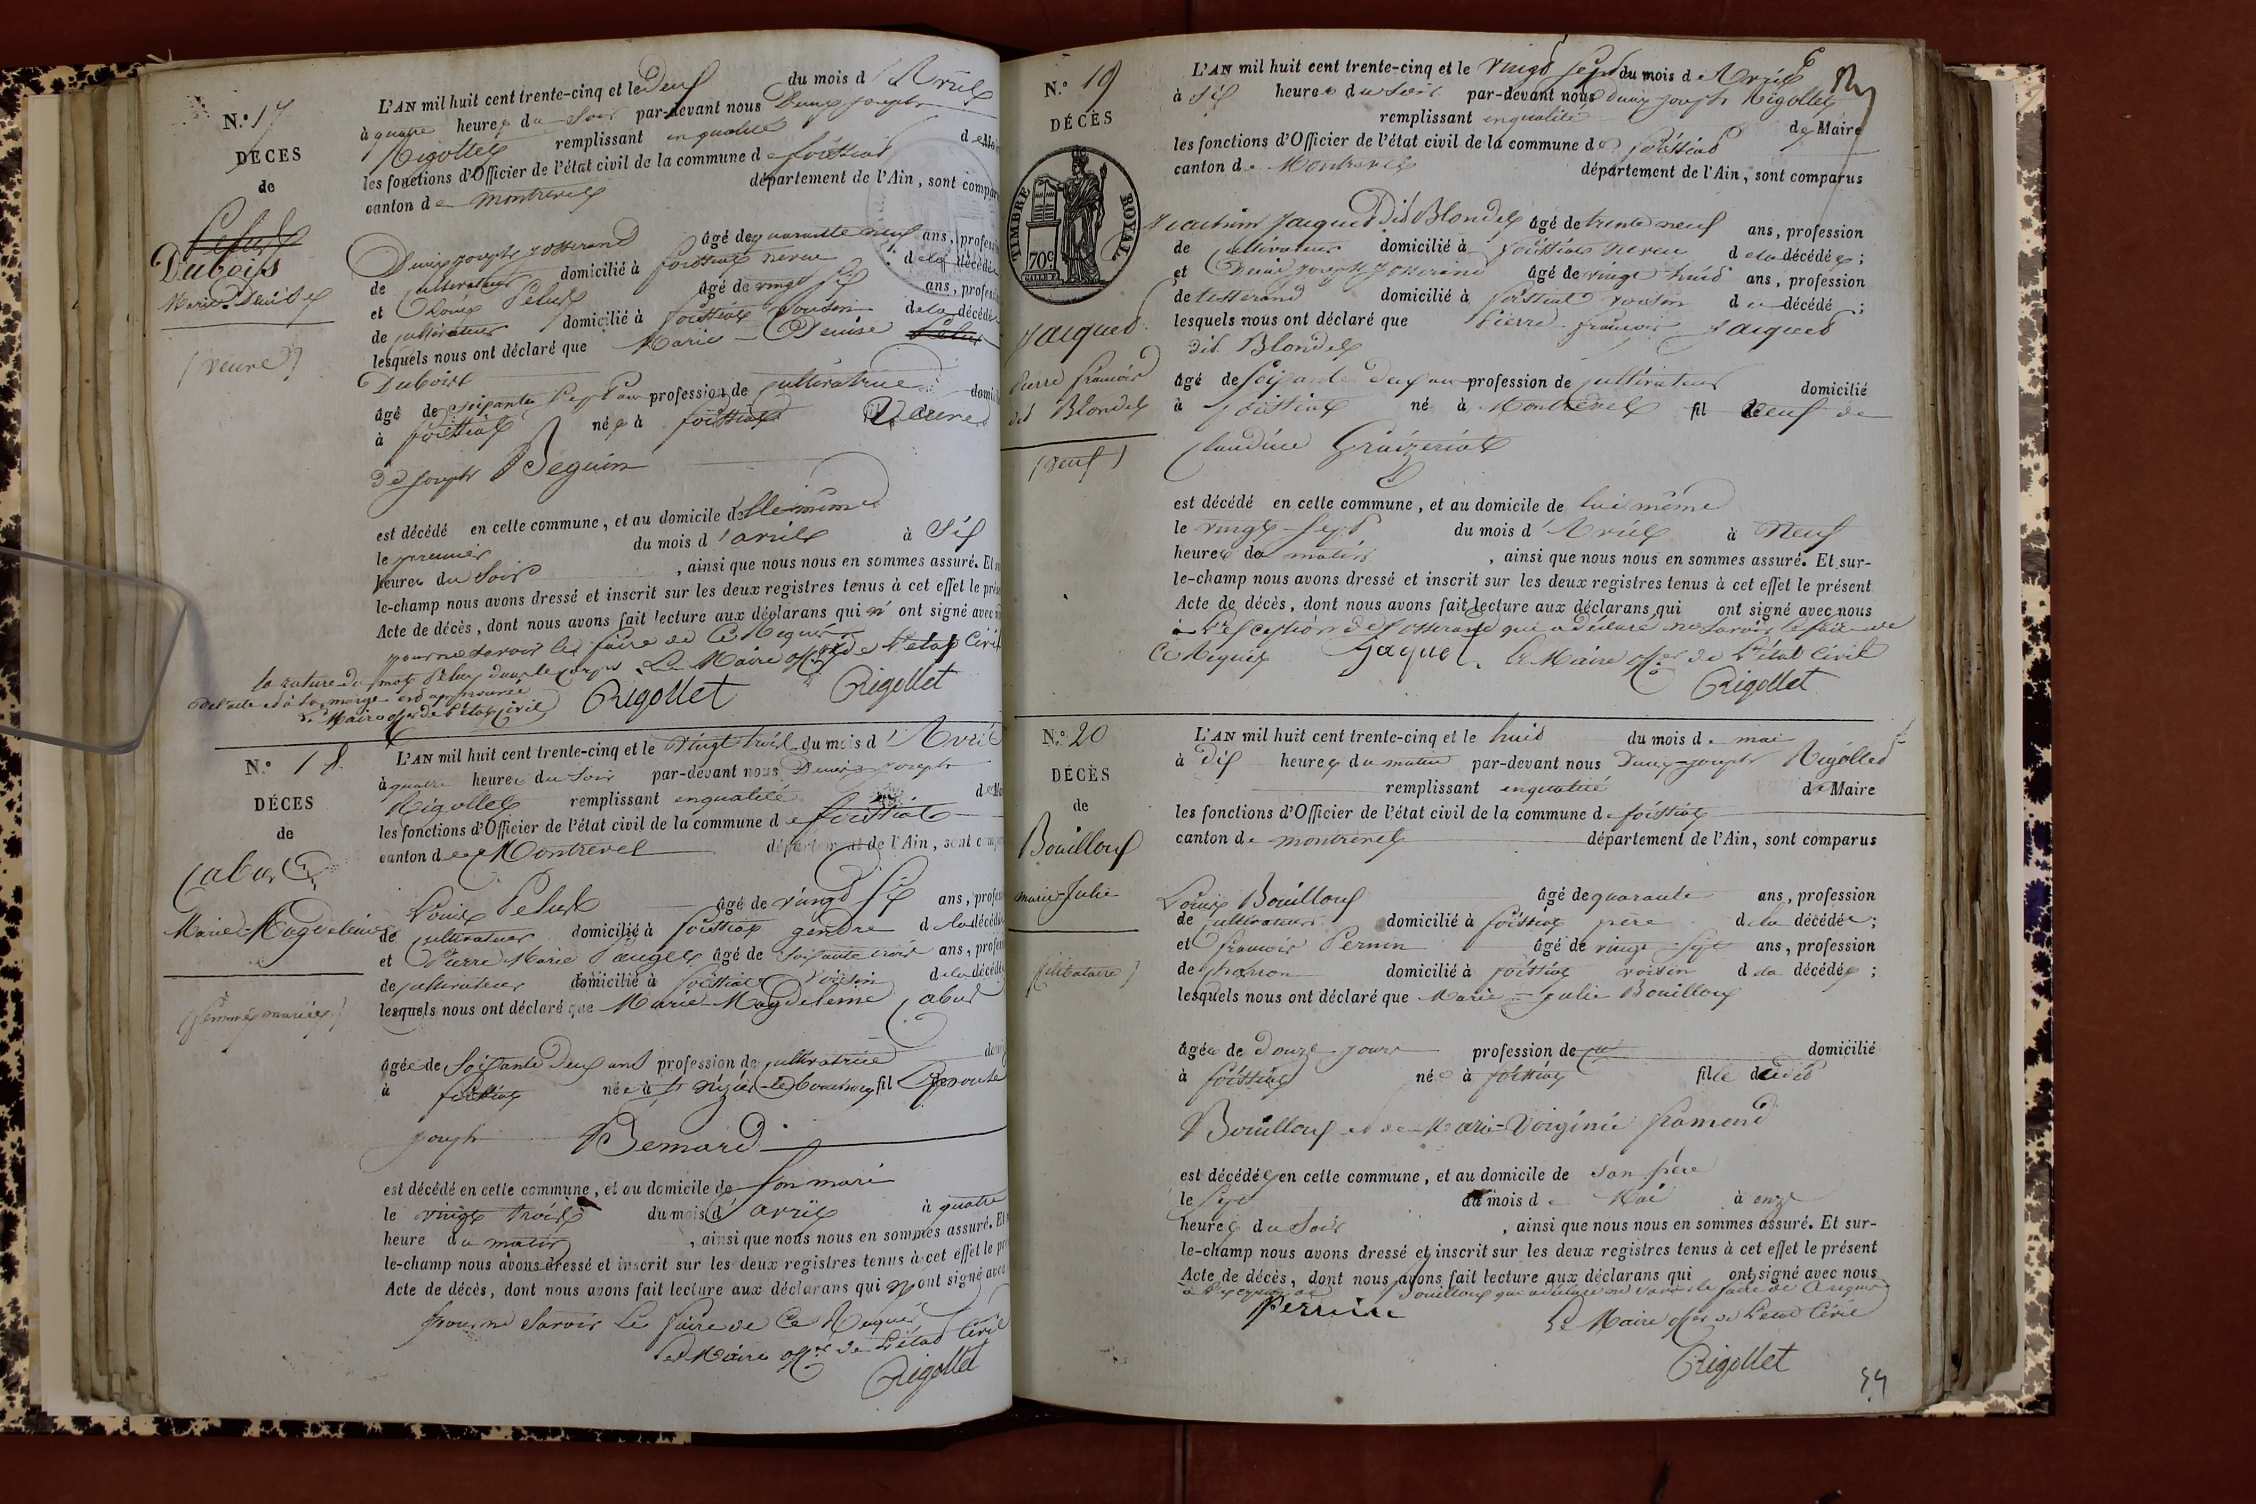 N.° 17
DÉCES
de
Pelus
Dubois
Marie Denise
(veuve)
L'AN mil huit cent trente-cinq et le Deux du mois d'Avril
à quatre heures du soir par-devant nous Denis Joseph
Rigollet remplissant en qualité de
les fonctions d'Officier de l'état civil de la commune de foissiat
canton de montrevel département de l'Ain, sont
Denis joseph josserand âgé de quarante neuf ans,
de cultivateur domicilié à foissiat neveu de la décédée
et Louis Pelus âgé de vingt six ans,
de cultivateur domicilié à foissiat voisin de la décédée
lesquels nous ont déclaré que Marie Denise Pelus
Dubois
âgé de soixante sept ans profession de cultivatrice
à foissiat née à foissiat veuve
de joseph Beguin
est décédé en cette commune, et au domicile d'elle même
le premier du mois d'avril à six
heures du soir, ainsi que nous nous en sommes assuré. Et
le-champ nous avons dressé et inscrit sur les deux registres tenus à cet effet le
Acte de décès, dont nous avons fait lecture aux déclarans qui n'ont signé avec
pour ne savoir le faire de ce Requis Le Maire offer de l'etat Civil
la rature du mot Pelus dans le corps
de l'acte et à la marge est approuvée
Le Maire offer de l'état Civil
Rigollet Rigollet
N.° 18
DÉCES
de
Cabut
Marie-Magdeleine
(femme mariée)
L'AN mil huit cent trente-cinq et le vingt trois du mois d'Avril
à quatre heures du soir par-devant nous Denis Joseph
Rigollet remplissant en qualité de
les fonctions d'Officier de l'état civil de la commune de foissiat
canton de Montrevel département de l'Ain, sont
Louis Pelus âgé de vingt six ans,
de cultivateur domicilié à foissiat gendre de la décédée
et Pierre Marie âgé de soixante trois ans,
de cultivateur domicilié à foissiat voisin de la décédée
lesquels nous ont déclaré que Marie-Magdeleine Cabut
âgée de soixante deux ans profession de cultivatrice
à foissiat née à St nizier-le-bouchoux fil Epouse
joseph Bernard
est décédé en cette commune, et au domicile de son mari
le vingt trois du mois d'avril à quatre
heure du matin, ainsi que nous nous en sommes assuré. Et
le-champ nous avons dressé et inscrit sur les deux registres tenus à cet effet le
Acte de décès, dont nous avons fait lecture aux déclarans qui n'ont signé avec
pour ne savoir le faire de ce Requis
Le Maire offer de l'état Civil
Rigollet
N.° 19
DÉCÈS
TIMBRE ROYAL
70c
Jacquet
Pierre françois
dit Blondel
(veuf)
L'AN mil huit cent trente-cinq et le vingt sept du mois de Avril
à six heures du soir par-devant nous Denis joseph Rigollet
remplissant en qualité de Maire
les fonctions d'Officier de l'état civil de la commune de foissiat
canton de Montrevel département de l'Ain, sont comparus
Jacquet Dit Blondel âgé de trente neuf ans, profession
de cultivateur domicilié à foissiat neveu de la décédée;
et Denis joseph josserand âgé de vingt huit ans, profession
de tisserand domicilié à foissiat voisin de décédé;
lesquels nous ont déclaré que Pierre françois Jacquet
dit Blondel
âgé de soixante deux ans profession de cultivateur domicilié
à foissiat né à Montrevel fil veuf de
Claudine
est décédé en cette commune, et au domicile de lui même
le vingt-sept du mois d'Avril à Neuf
heures du matin, ainsi que nous nous en sommes assuré. Et sur-
le-champ nous avons dressé et inscrit sur les deux registres tenus à cet effet le présent
Acte de décès, dont nous avons fait lecture aux déclarans qui ont signé avec nous
à l'exception de josserand qui a déclaré ne savoir le faire de
ce Requis Jaquet Le Maire offer de l'état Civil
Rigollet
N.° 20
DÉCÈS
de
Bouilloux
marie-Julie
(célibataire)
L'AN mil huit cent trente-cinq et le huit du mois de mai
à dix heures du matin par-devant nous Denis-joseph Rigollet
remplissant en qualité de Maire
les fonctions d'Officier de l'état civil de la commune de foissiat
canton de montrevel département de l'Ain, sont comparus
Louis Bouilloux âgé de quarante ans, profession
de cultivateur domicilié à foissiat père de la décédée;
et françois Pernin âgé de vingt-sept ans, profession
de domicilié à foissiat voisin de la décédée;
lesquels nous ont déclaré que Marie-julie Bouilloux
âgée de douze jours profession de domicilié
à foissiat née à foissiat fille dudit
Bouilloux et de Marie-Virginie framond
est décédée en cette commune, et au domicile de son père
le sept du mois de Mai à onze
heures du soir, ainsi que nous nous en sommes assuré. Et sur-
le-champ nous avons dressé et inscrit sur les deux registres tenus à cet effet le présent
Acte de décès, dont nous avons fait lecture aux déclarans qui ont signé avec nous
à l'exception de Bouilloux qui a déclaré ne savoir le faire de ce requis
Pernin Le Maire offer de l'état Civil
Rigollet